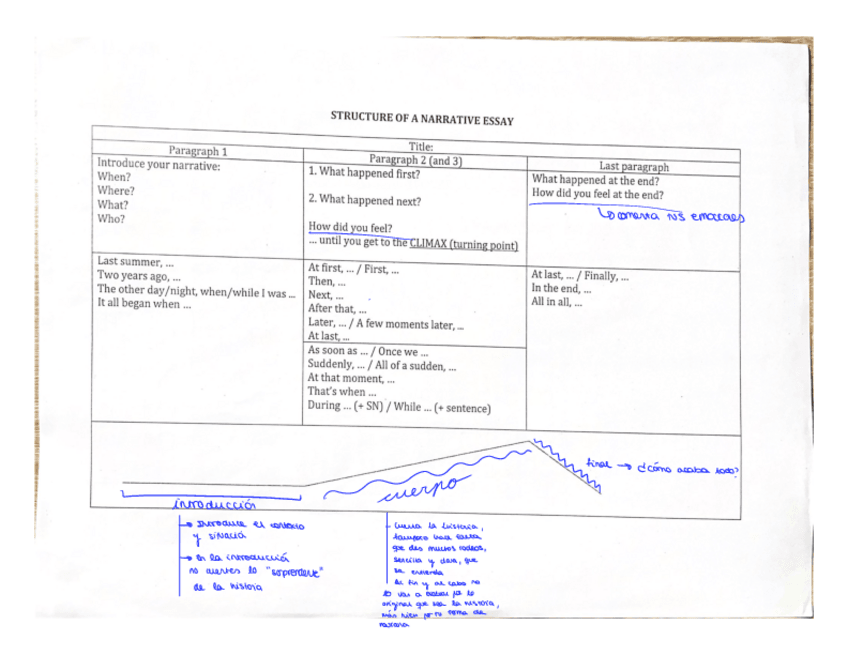 STRUCTURE OF A NARRATIVE ESSAY
Title:
Paragraph 1
Introduce your narrative:
When?
Where?
What?
Who?
Paragraph 2 (and 3)
1. What happened first?
2. What happened next?
How did you feel?
... until you get to the CLIMAX (turning point)
Last paragraph
What happened at the end?
How did you feel at the end?
comenta
Last summer, ...
Two years ago, ...
The other day/night, when/while I was ...
It all began when ...
At first, ... / First, ...
Then, ...
Next, ...
After that, ...
Later, ... / A few moments later, ...
At last, ...
As soon as ... / Once we ...
Suddenly, ... / All of a sudden, ...
At that moment, ...
That's when ...
During ... (+ SN) / While ... (+ sentence)
At last, ... / Finally, ...
In the end, ...
All in all, ...
introducción
cuerpo
final → ¿cómo acaba todo?
→ Introduce el contexto
y situació
→ en la introducción
no cuentes lo "sorprendente"
de la historia
- cuenta la historia,
tampoco hace falta
que des muchos rodeos,
sencilla y clara, que
se entienda
Al fin y al cabo no
lo vas a petar por lo
original que sea la historia,
más bien por tu forma de